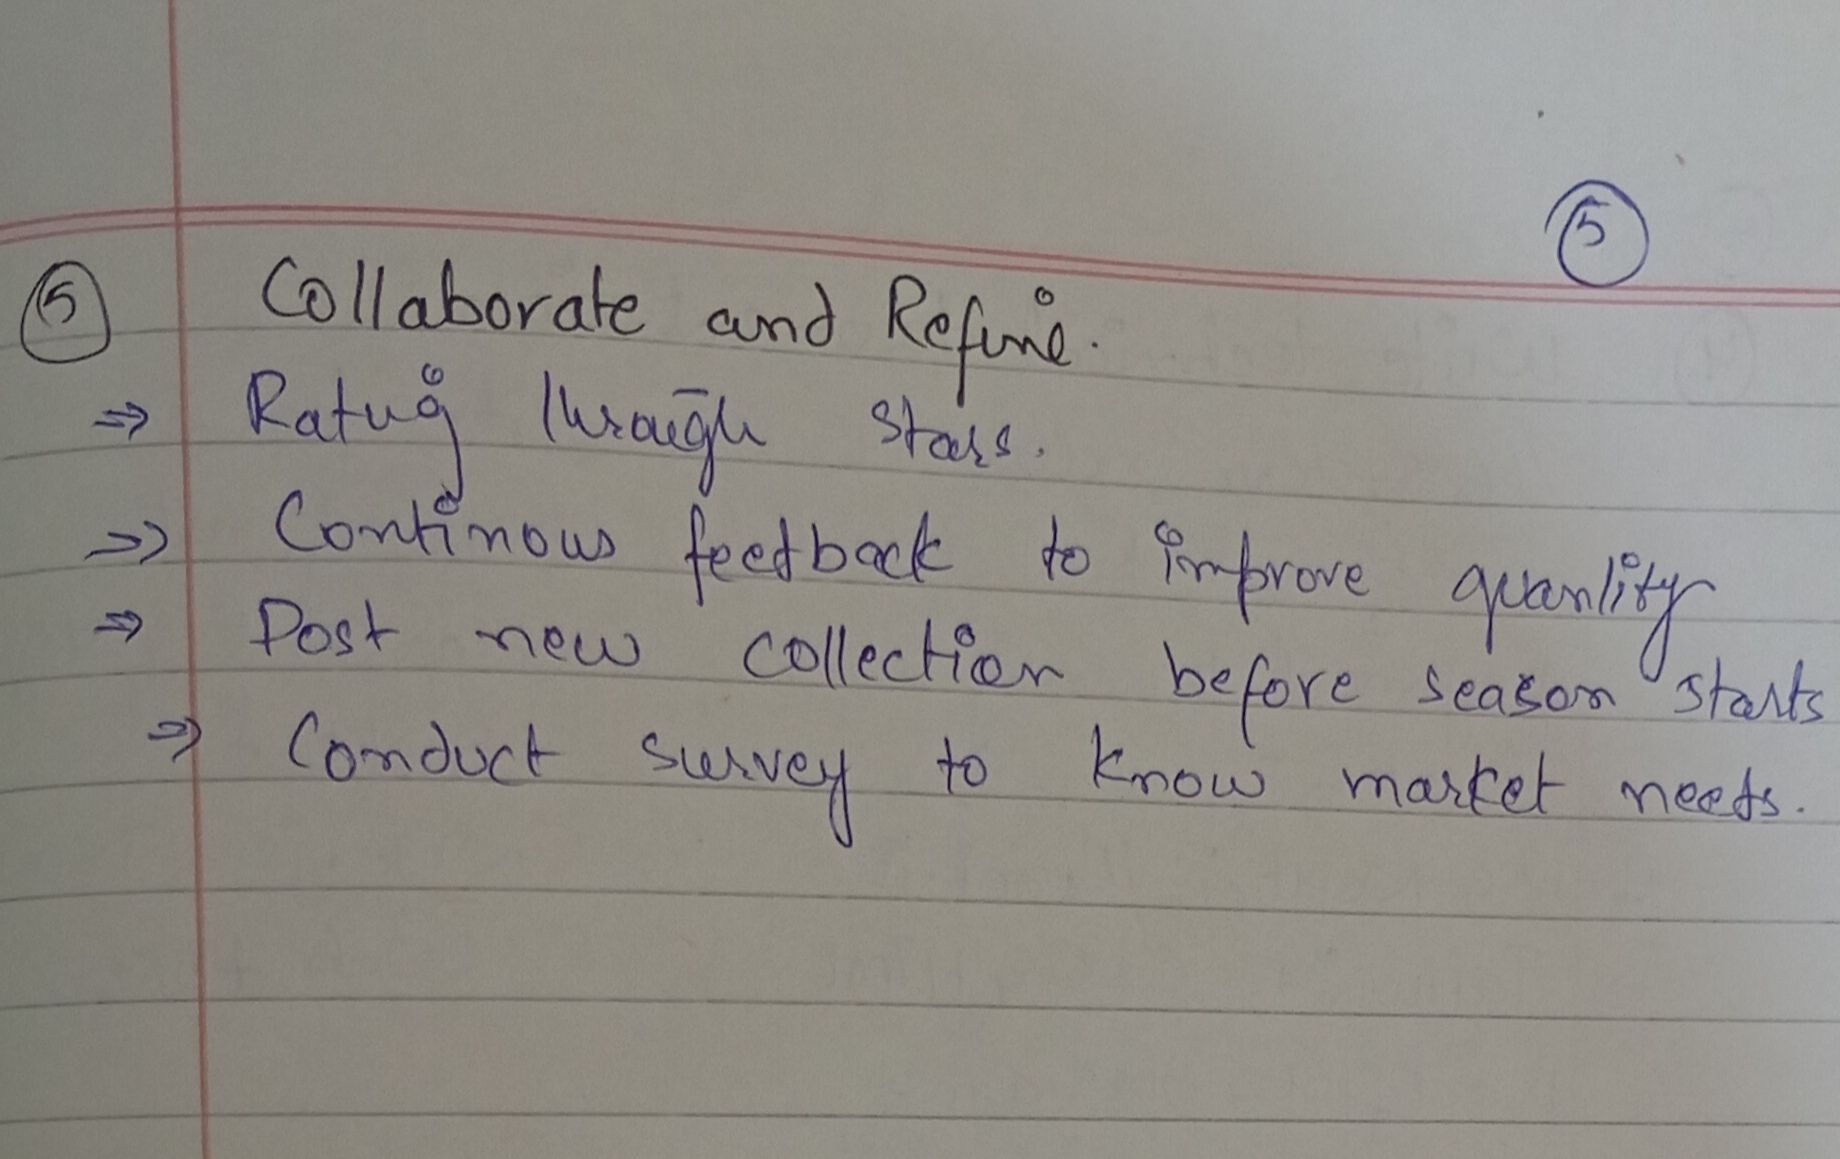 5
5 Collaborate and Refine.
⇒ Rating through stars.
⇒ Continous feedback to improve quanlity
⇒ Post new collection before season starts
⇒ Conduct survey to know market needs.